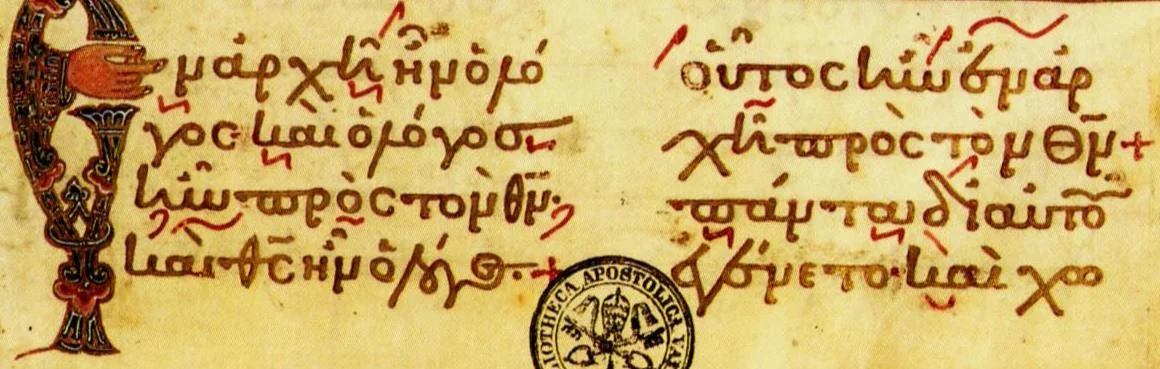 Ἐν ἀρχῆ ἦν ὁ λό
γος· καὶ ὁ λόγος
ἦν πρὸς τὸν θν̄·
καὶ θς̄ ἦν ὁ λόγος·+
οὗτος ἦν ἐν ἀρ
χῆ πρὸς τὸν θν̄+
πάντα δι αὐτοῦ
ἐγένετο· καὶ χω
IOTHECA APOSTOLICA VAT